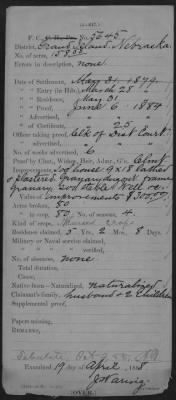 (4—417.)
No. 5245
District, Grand Island, Nebraska.
Errors in description, none
Date of Settlement, May 31, 1879.
" " Entry (in Hd.), March 28
" " Residence, May 31
" " Proof, June 6 1884
" " Advertised,
" " of Certificate, " 25
Officer taking proof, Clk of Dist Court
" " advertised,
No. of weeks advertised, 6
Proof by Clmt., Widow, Heir, Admr., G'n. Clmt
Improvements, Sod house 9 x 18 lathed
& plastered Granary dugout frame
Granary, sod stable Well &c.
" Value of improvements $300.00
Acres broken, 80
" in crop, 80 No. of seasons, 4.
Kind of crops,
Residence claimed 5 Yrs. 2 Mos. 8 Days.
Military or Naval service claimed,
" " " verified,
No. of absences, none
" Total duration,
Cause,
Native-born—Naturalized, naturalized
Claimant's family, husband & 2 Children
Supplemental proof,
Papers missing,
REMARKS,
Examined 19 day of April 1888
(OVER.)